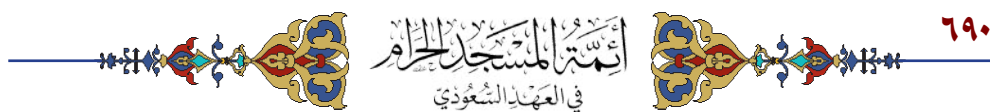 ٦٩٠
أئمة المسجد الحرام
في العهد السعودي